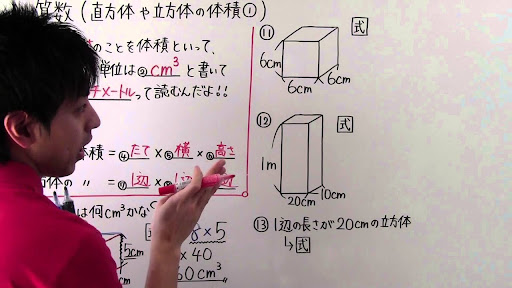 算数(直方体や立方体の体積①)
のことを体積といって、
単位は③cm³と書いて
チメートルって読むんだよ!!
体積=④たて×⑤横×⑥高さ
体の〃=⑦1辺×⑧1辺×
は何cm³かな
5cm
8×5
×40
60cm³
⑪
式
6cm
6cm
6cm
⑫
式
1m
20cm
10cm
⑬1辺の長さが20cmの立方体
↳式